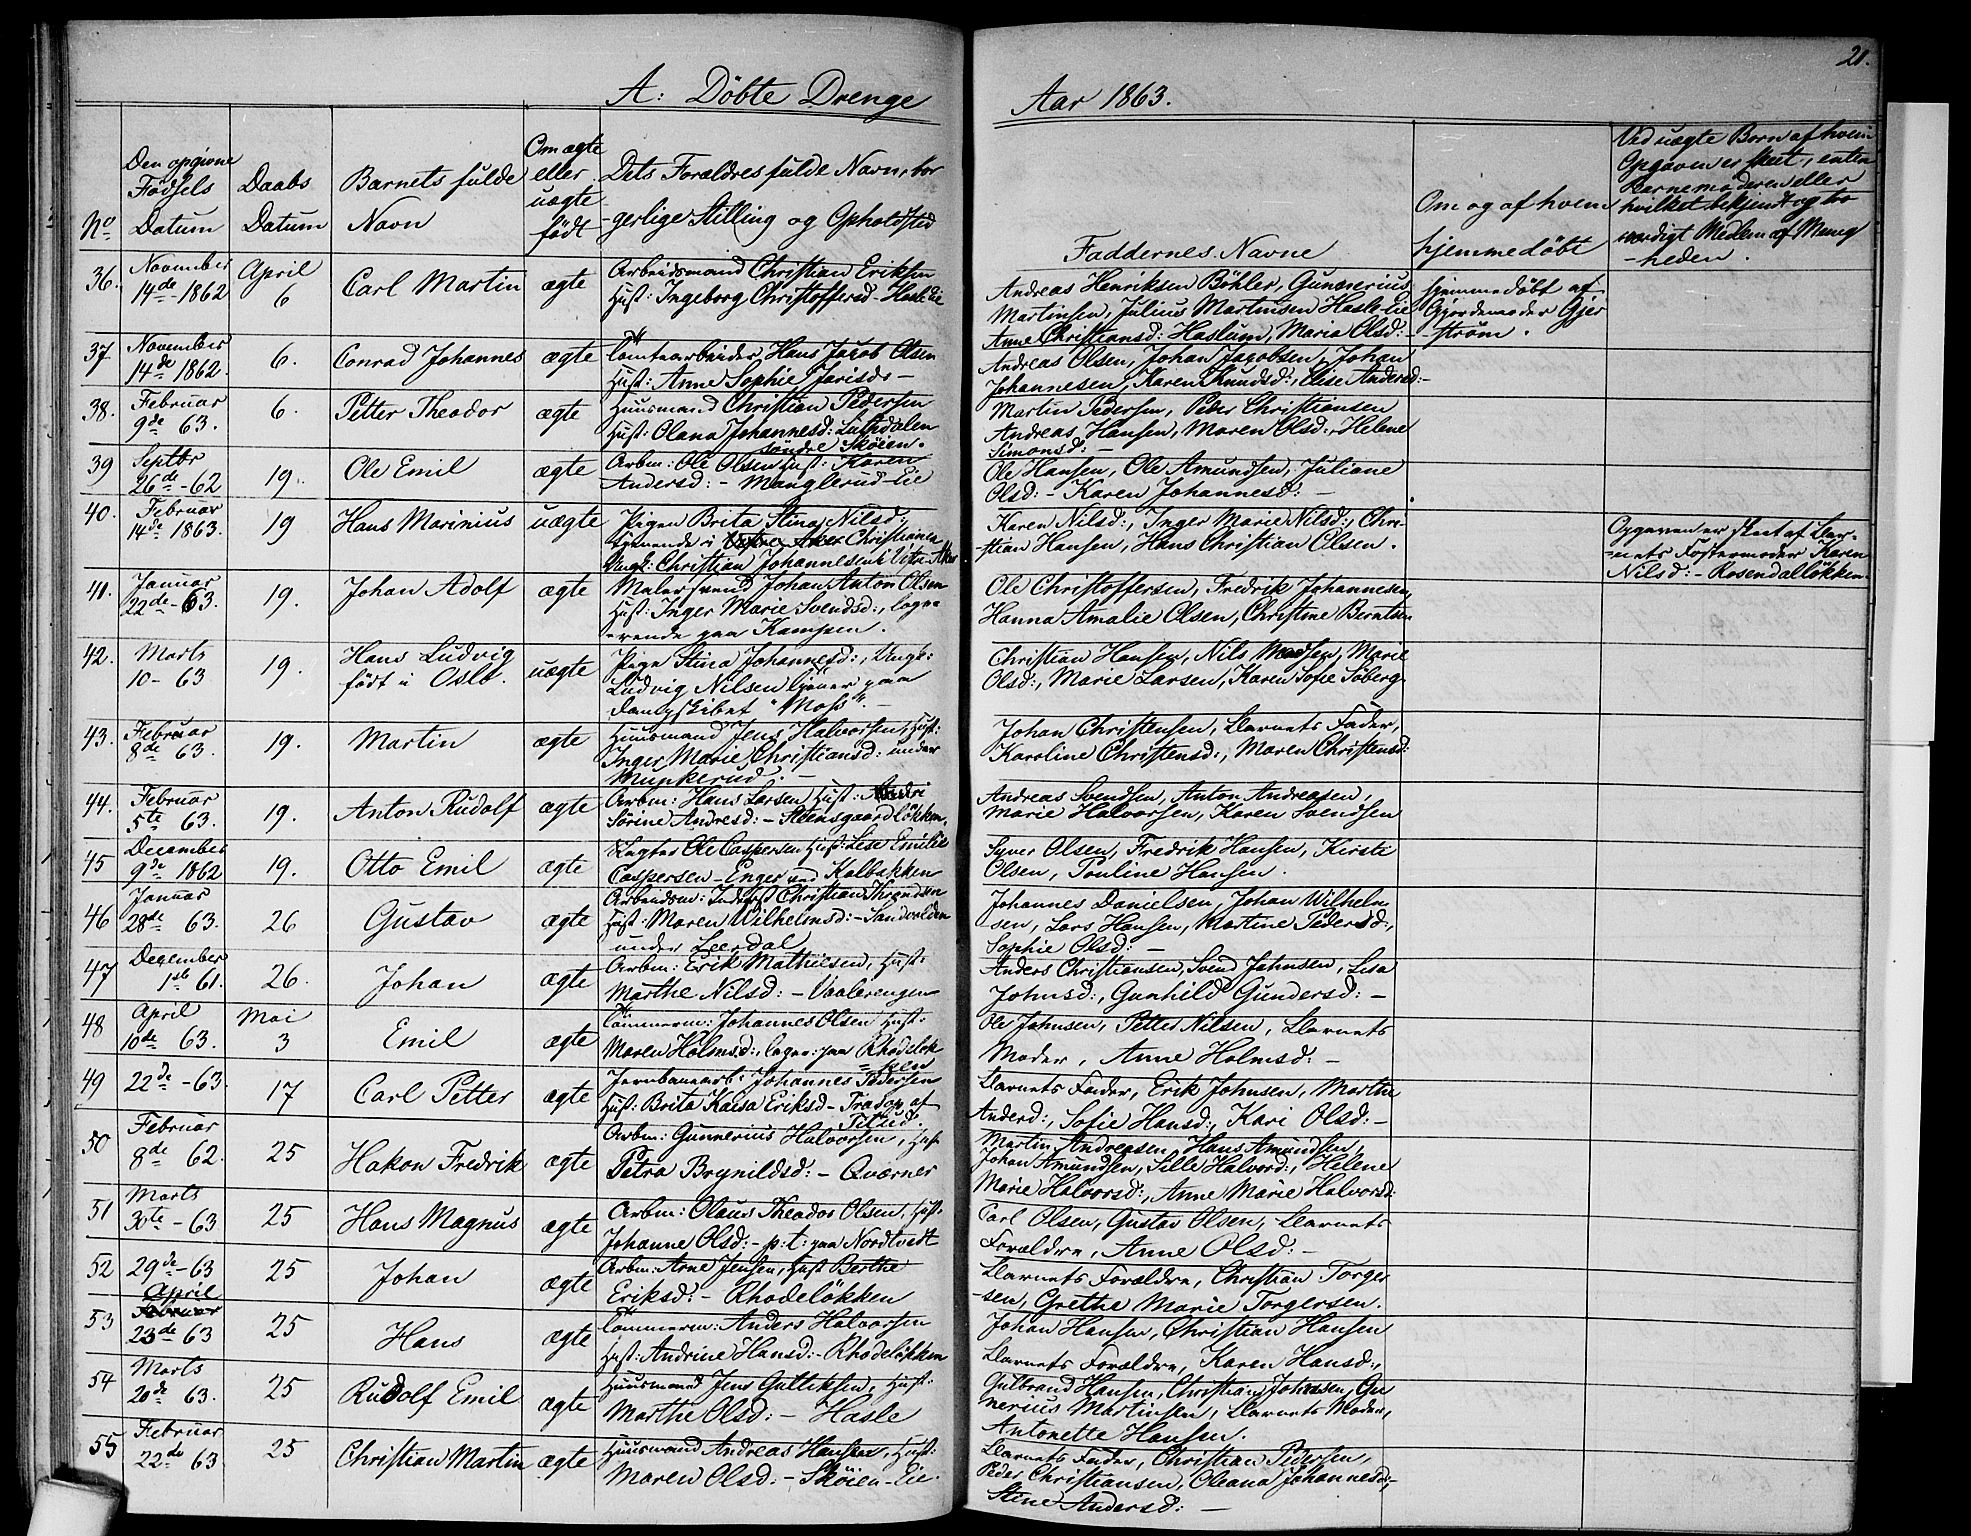 21.
A: Döbte Drenge
Aar 1863.
No
Den opgivne
Födsels
Datum
Daabs
Datum
Barnets fulde
Navn
Om ægte
eller
uægte
födt
Dets Forældres fulde Navn, bor
gerlige Stilling og Opholdsted
Faddernes Navne
Om og af hvem
hjemmedöbt
Ved uægte Born af hvem
Opgaven er skeet, enten
Barnemoderen eller
hvilket bekjendt og tro
værdigt Medlem af Menig
-heden.
36.
November
14de - 1862
April
6
Carl Martin
ægte
Arbeidsmand Christian Eriksen
Hust: Ingeborg Christoffersd - Hasle Eie
Andreas Henriksen Böhler, Gunnerius
Martinsen, Julius Martinsen Hasle-Eie
Anne Christiansd: Haslum, Maria Olsd: -
hjemmedöbt af
Gjordemoder Gjer
ström.
37.
November
14de 1862.
6.
Conrad Johannes
ægte
Tomtearbeider Hans Jacob Olsen
Hust: Anne Sophie Jarisdr -
Andreas Olsen, Johan Jacobsen, Johan
Johannesen, Karen Knudsd:, Elise Andersd: -
38.
Februar
9de 63.
6.
Petter Theodor
ægte
Huusmand Christian Pedersen
Hust: Olana Johannesd:
söndre Sköien.
Martin Pedersen, Peder Christiansen
Andreas Hansen, Maren Olsd:, Helene
Simonsd: -
39
Septbr
26de - 62
19.
Ole Emil
ægte
Arbm: Ole Olsen Hust: Karen
Andersd: - Manglerud-Eie
Ole Hansen, Ole Amundsen, Juliane
Olsd: - Karen Johannesd: -
40.
Februar
14de 1863.
19
Hans Marinius
uægte
Pigen Brita Stina Nilsd,
tjenende i Christiania
Ungk: Christian Johannesen i Vestre Aker
Karen Nilsd:, Inger Marie Nilsd:, Chri-
-stian Hansen, Hans Christian Olsen.
Opgaven er skeet af Bar-
-nets Fostermoder Karen
Nilsd: - Rosendallökken
41.
Januar
22de - 63.
19.
Johan Adolf
ægte
Malersvend Johan Anton Olsen
Hust: Inger Marie Svendsd:, loge
-rende paa Kampen.
Ole Christoffersen, Fredrik Johannesen,
Hanna Amalie Olsen, Christine Berntsen
42.
Marts
10 - 63
19.
Hans Ludvig
födt i Oslo.
uægte
Pige Stina Johannesd:, Ungk:
Ludvig Nilsen tjener paa
Dampskibet "Moss". -
Christian Hansen, Nils Madsen, Marie
Olsd:, Marie Larsen, Karen Sofie Söberg.
43.
Februar
8de 63.
19.
Martin
ægte
Huusmand Jens Halvorsen, Hust:
Inger Marie Christiansd: under
Munkerud. -
Johan Christensen, Barnets Fader,
Karoline Christensd:, Maren Christensd:
44.
Februar
5te 63.
19.
Anton Rudolf
ægte
Arbm: Hans Larsen, Hust:
Sörine Andresd: - Steensgaardlökken.
Andreas Svendsen, Anton Andreasen,
Marie Halvorsen, Karen Svendsen
45
December
9de 1862
19.
Otto Emil
ægte
Slagter Ole Caspersen Hust: Lise Emilie
Caspersen - Enger ved Kalbakken
Syver Olsen, Fredrik Hansen, Kirsti
Olsen, Pouline Hansen.
46
Januar
28de 63.
26
Gustav
ægte
Arbeidsm: Inderst Christian Throndsen
Hust: Maren Wilhelmsd: - Sandvolden
under Leerdal
Johannes Danielsen, Johan Wilhelm
sen, Lars Hansen, Martine Pedersd:,
Sophie Olsd: -
47
December
1ste 61.
26.
Johan
ægte
Arbm: Erik Mathiesen, Hust:
Marthe Nilsd: - Vaalerengen
Anders Christiansen, Svend Johnsen, Lisa
Johnsd:, Gunhild Gundersd: -
48
April
10de 63.
Mai
3
Emil
ægte
Tömmerm: Johannes Olsen Hust:
Maren Holmsd:, loger: paa Rhodelök
=ken
Ole Johnsen, Petter Nilsen, Barnets
Moder, Anne Holmsd: -
49
22de - 63.
17
Carl Petter
ægte
Jernbanearb: Johannes Pedersen
Hust: Brita Kaisa Eriksd -
Barnets Fader, Erik Johnsen, Marthe
Andersd:, Sofie Hansd:, Kari Olsd: -
50
Februar
8de 62.
25
Hakon Fredrik
ægte
Arbm: Gunnerius Halvorsen, Hust
Petra Brynildsd: - Qværner
Martin Andreasen, Hans Amundsen,
Johan Amundsen, Lille Halvord:, Helene
Marie Halvorsd:, Anne Marie Halvorsd:
51
Marts
30te - 63
25
Hans Magnus
ægte
Arbm: Olaus Theodor Olsen, Hust:
Johanne Olsd: - p: t: paa Nordtvedt
Carl Olsen, Gustav Olsen, Barnets
Forældre, Anne Olsd: -
52
29de - 63
25
Johan
ægte
Arbm: Arne Jensen, Hust Berthe
Eriksd: - Rhodelökken
Barnets Forældre, Christian Torger
-sen, Grethe Marie Torgersen.
53
April
Februar
23de 63
25
Hans
ægte
Tömmerm: Anders Halvorsen
Hust: Andrine Hansd: - Rhodelökken
Johan Hansen, Christian Hansen
Barnets Forældre, Karen Hansd:,
54
Marts
20de 63.
25
Rudolf Emil
ægte
Huusmand Jens Gulliksen, Hust:
Marthe Olsd: - Hasle
Gulbrand Hansen, Christian Johnsen, Gu
nerius Martinsen, Barnets Moder,
Antonette Hansen.
55
Februar
22de 63
25
Christian Martin
ægte
Huusmand Andreas Hansen, Hust:
Maren Olsd: - Sköien-Eie.
Barnets Fader, Christian Pedersen,
Peder Christiansen, Oleana Johannesd: -
Stine Andersd: -